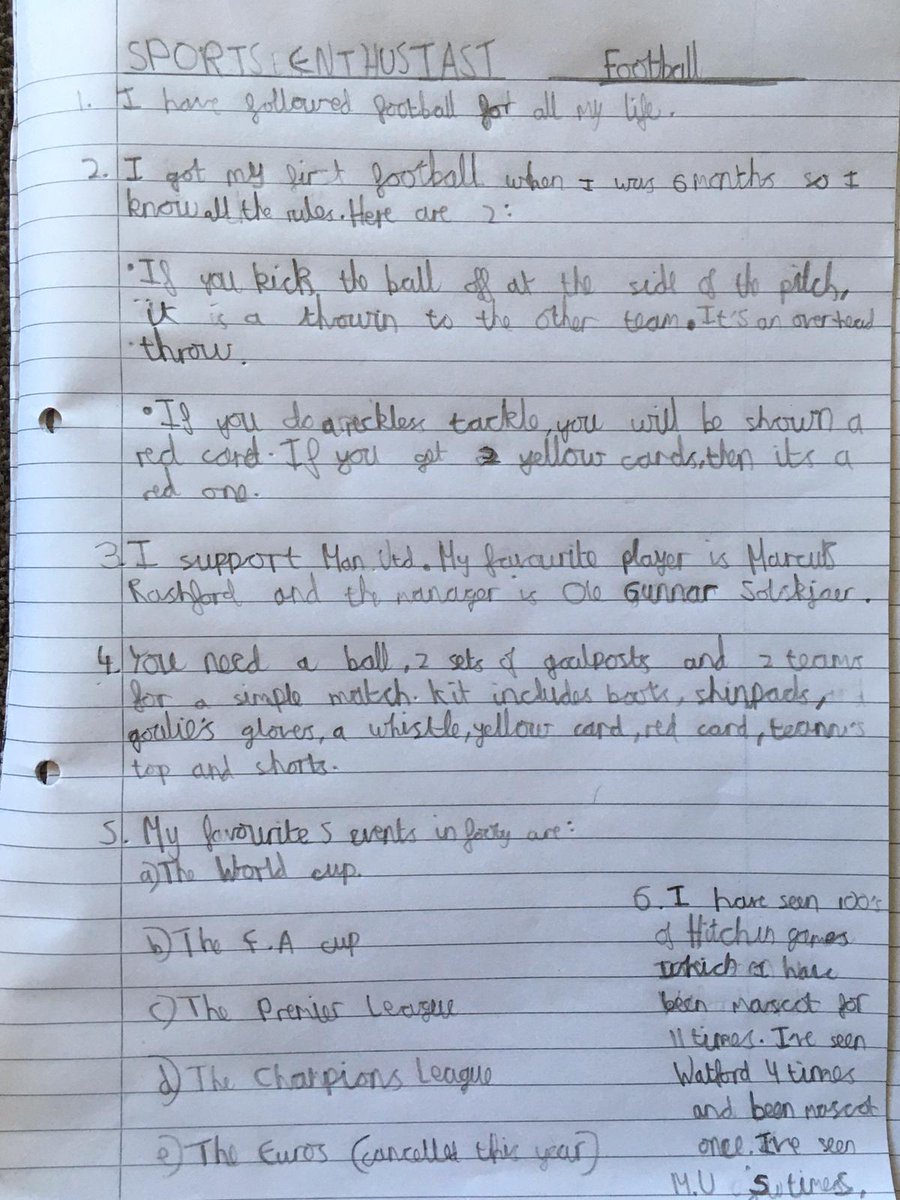 SPORTS: ENTHUSIAST Football
1. I have followed football for all my life.
2. I got my first football when I was 6 months so I
know all the rules. Here are 2:
• If you kick the ball off at the side of the pitch,
it is a throwin to the other team. It's an overhead
throw.
• If you do a reckless tackle, you will be shown a
red card. If you get 2 yellow cards, then its a
red one.
3. I support Man Utd. My favourite player is Marcus
Rashford and the manager is Ole Gunnar Solskjaer.
4. You need a ball, 2 sets of goalposts and 2 teams
for a simple match. Kit includes boots, shinpads,
goalie's gloves, a whistle, yellow card, red card, team's
top and shorts.
5. My favourite 5 events in footy are:
a) The World cup.
b) The F.A cup
c) The Premier League
d) The Champions League
e) The Euros (cancelled this year)
6. I have seen 100's
of Hitchin games
which I have
been mascot for
11 times. I've seen
Watford 4 times
and been mascot
once. I've seen
M.U 5 times.